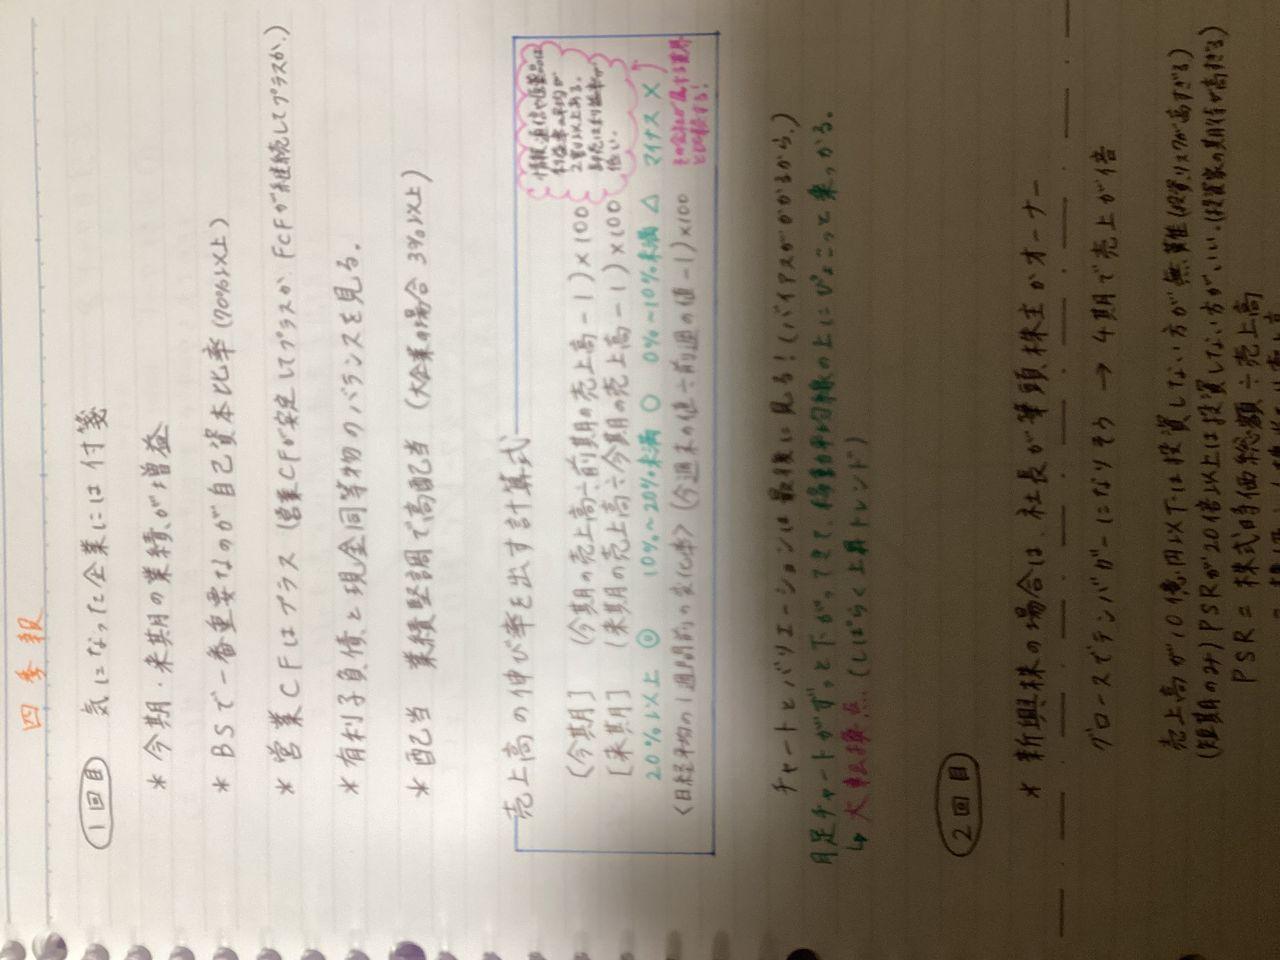 四季報
1回目 気になった企業には付箋
* 今期・来期の業績が増益
* BSで一番重要なのが自己資本比率(70%以上)
* 営業CFはプラス (営業CFが安定してプラスか、FCFが継続してプラスか。)
* 有利子負債と現金同等物のバランスを見る。
* 配当 業績堅調で高配当 (大企業の場合 3%以上)
売上高の伸び率を出す計算式
[今期] (今期の売上高÷前期の売上高-1)×100
[来期] (来期の売上高÷今期の売上高-1)×100
20%以上 ◎ 10%~20%未満 ○ 0%~10%未満 △ マイナス ×
〈日経平均の1週間前の変化率〉(今週末の値÷前週の値-1)×100
利益率の平均が
2割以上ある。
低い。
と比較する!
チャートとバリエーションは最後に見る!(バイアスがかかるから。)
月足チャートがずっと下がってきて、移動平均線の上にぴょこっと乗っかる。
↳ 大転換点 (しばらく上昇トレンド)
2回目
* 新興株の場合は、社長が筆頭株主かオーナー
グロースでテンバガーになりそう → 4期で売上が倍
売上高が10億円以下は投資しない方が無難(投資リスクが高すぎる)
(短期のみ)PSRが20倍以上は投資しない方がいい。(投資家の期待が高すぎる)
PSR = 株式時価総額÷売上高